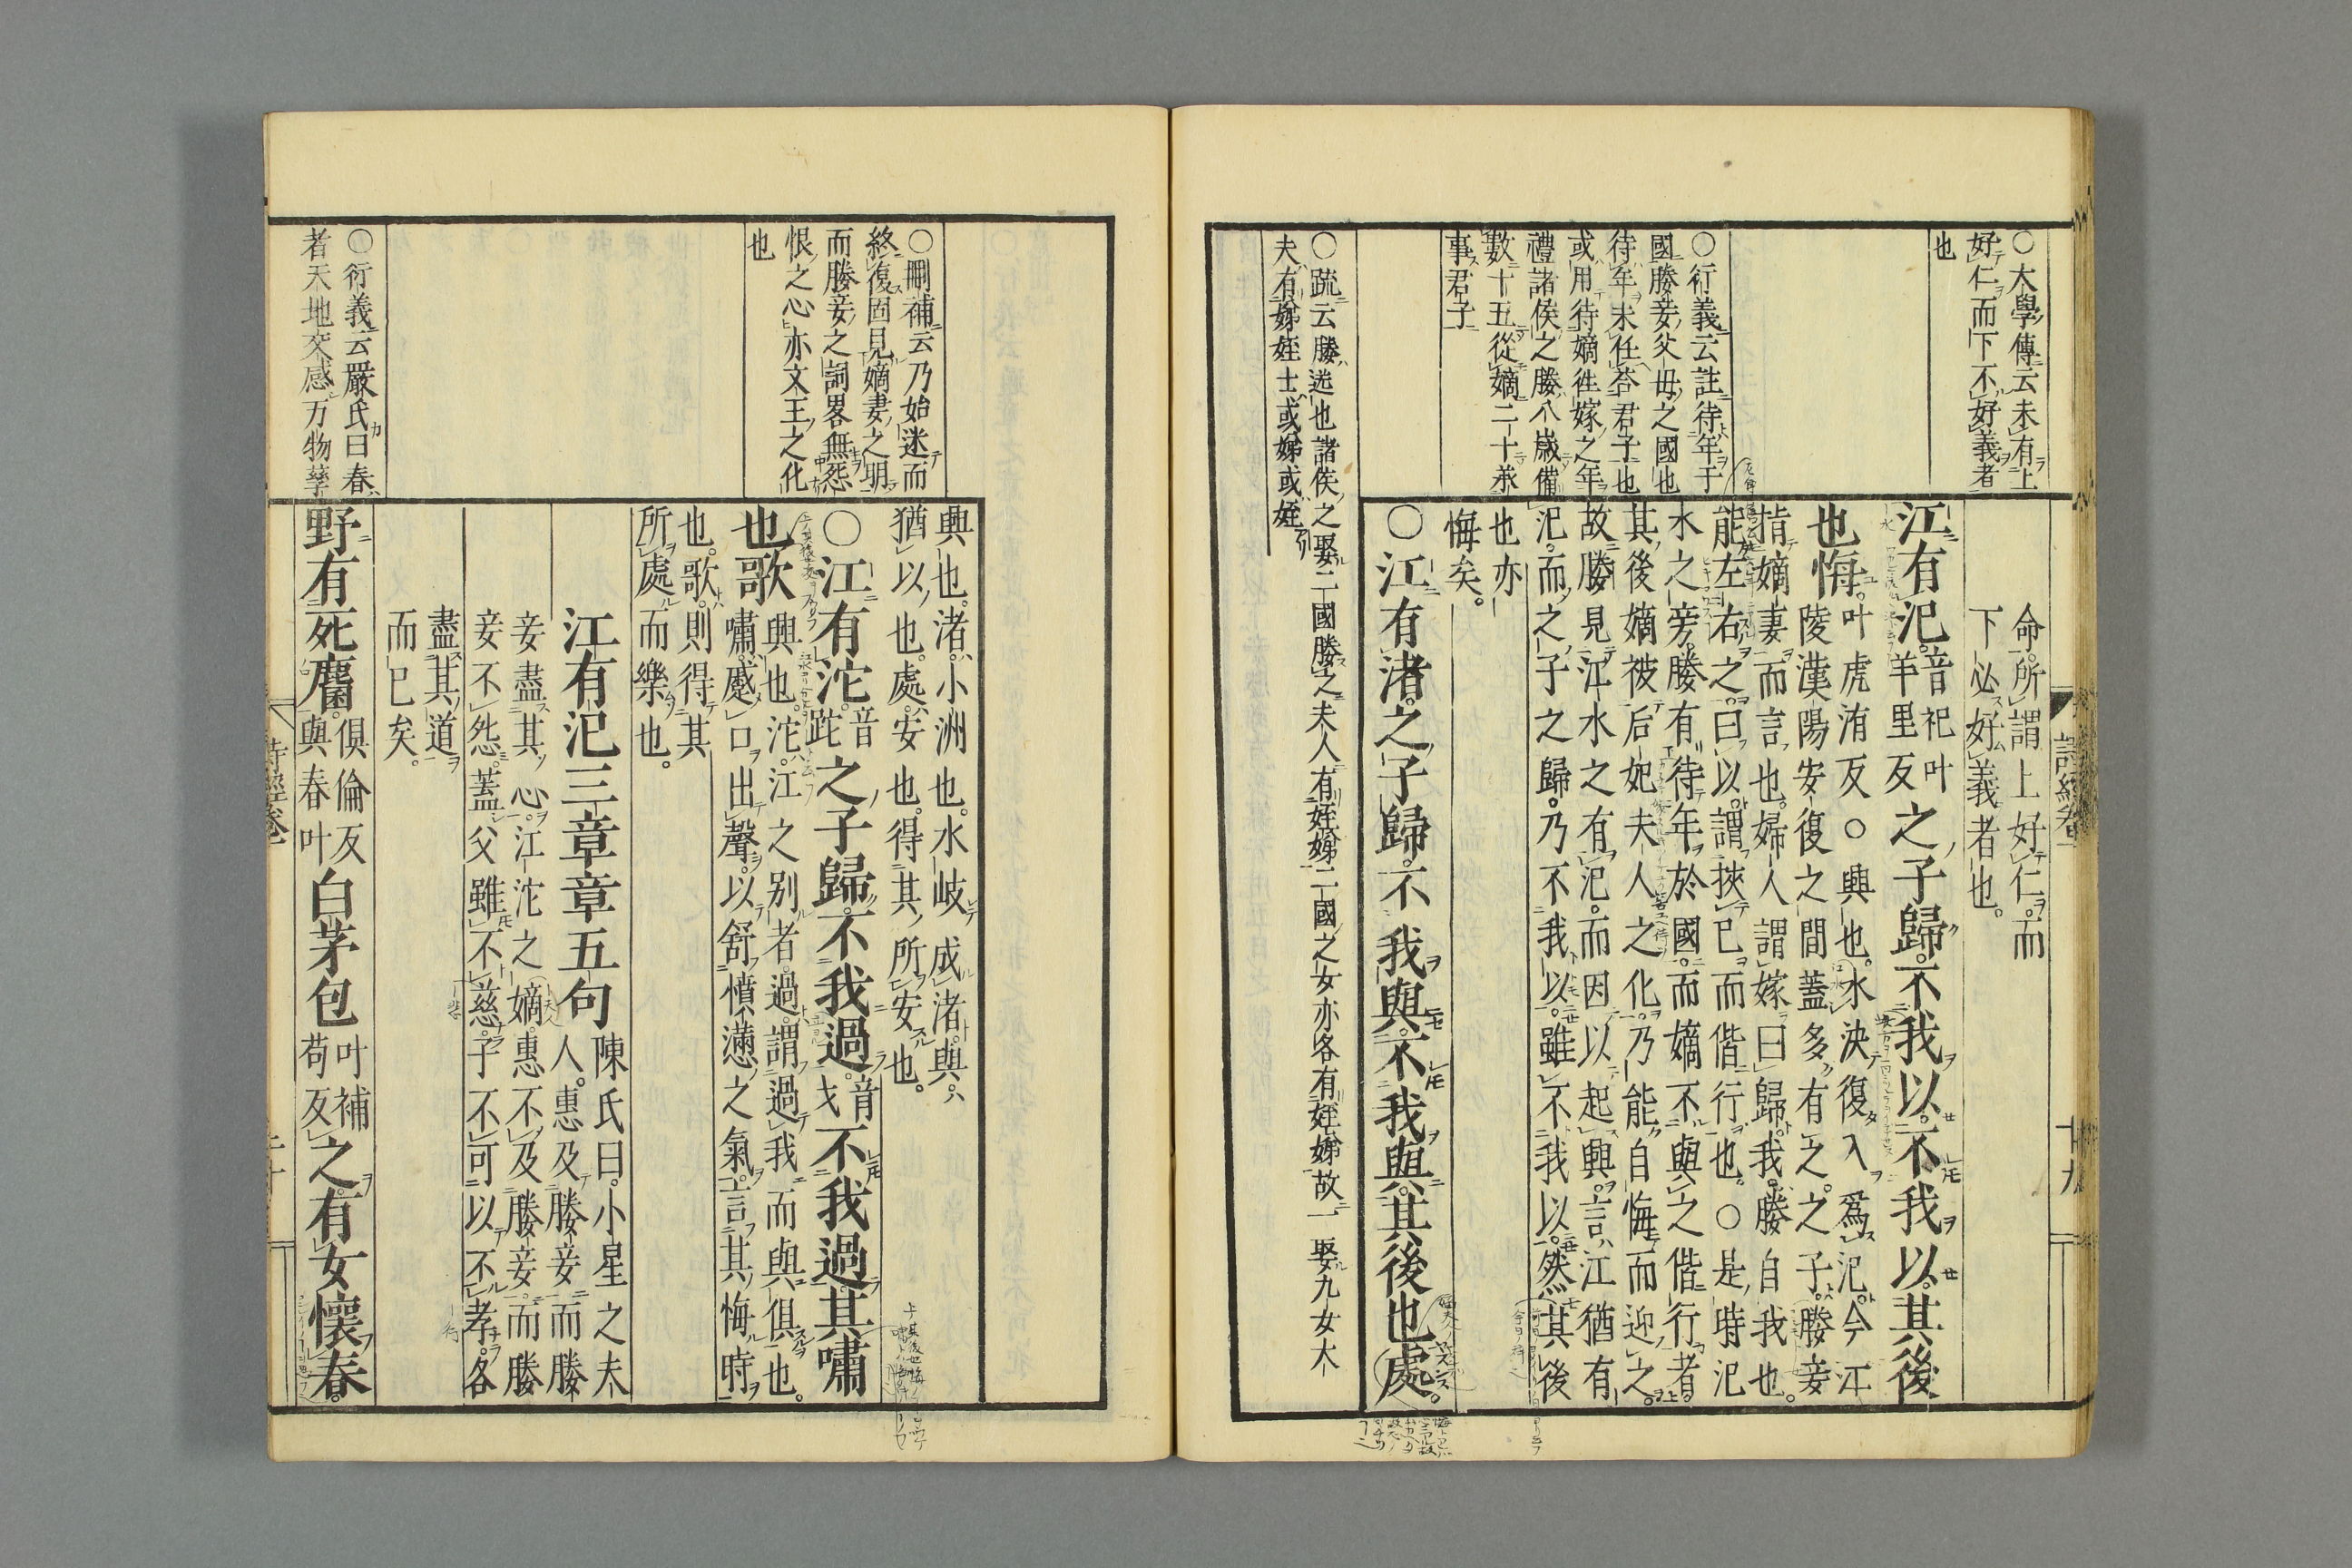 〇大學傳云未有上
好仁而下不好義者
也
〇衍義云註待年于
國媵妾父母之國也
待年未任荅君子也
或用待嫡徃嫁之年
禮諸侯之媵八歳備
數十五從嫡二十羕
事君子
〇疏云媵送也諸侯之娶二國媵之夫人有姪娣二國之女亦各有姪娣故一娶九女大
夫有娣姪士或娣或姪
命所謂上好仁而
下必好義者也。
江有汜。音祀叶羊里反之子歸。不我以。不我以。其後
也悔。叶虎洧反〇興也。水決復入爲汜。今江
陵漢陽安復之間蓋多有之。之子。媵妾
指嫡妻而言也。婦人謂嫁曰歸。我。媵自我也。
能左右之。曰以。謂挾已而偕行也。〇是時汜
水之旁。媵有待年於國。而嫡不與之偕行者。
其後嫡被后妃夫人之化。乃能自悔而迎之。
故媵見江水之有汜。而因以起興。言江猶有
汜。而之子之歸。乃不我以。雖不我以。然其後
也亦
悔矣。
〇江有渚。之子歸。不我與。不我與。其後也處。
興也。渚。小洲也。水岐成渚。與。
猶以也。處。安也。得其所安也。
〇江有沱。音跎之子歸。不我過。音戈不我過。其嘯
也歌興也。沱。江之别者。過。謂過我而與俱也。
嘯。蹙口出聲。以舒憤懣之氣。言其悔時
也。歌。則得其
所處而樂也。
江有汜三章章五句陳氏曰。小星之夫
人。惠及媵妾。而媵
妾盡其心。江沱之嫡。惠不及媵妾。而媵
妾不怨。蓋父雖不慈。子不可以不孝。各
盡其道
而已矣。
野有死麕。俱倫反與春叶白茅包叶補苟反之。有女懷春。
〇刪補云乃始迷而
終復固見嫡妻之明
而媵妾之詞畧無怨
恨之心亦文王之化
也
〇衍義云嚴氏曰春
者天地交感万物孳
詩經卷一
十九